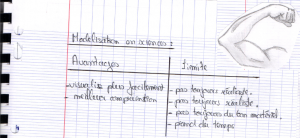 Modélisation en sciences :
Avantages
limite
- visualise plus facilement
- meilleure compréhension
- pas toujours réaliste.
- pas toujours
- pas toujours du bon matériel.
- prend du temps